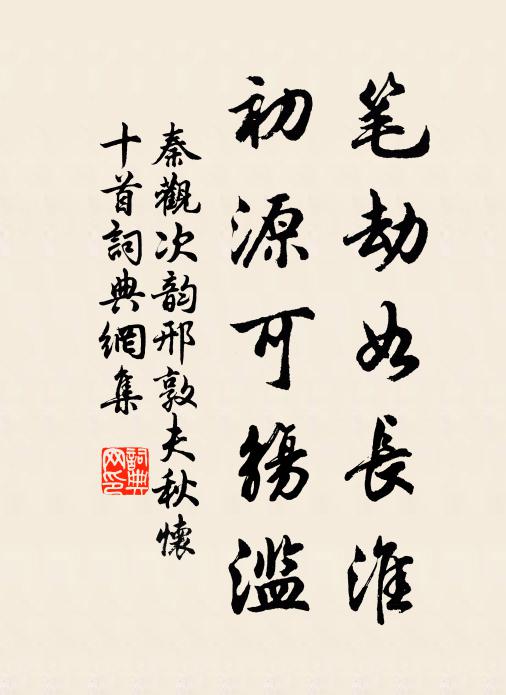 笔劫如長淮
初源可觴濫
秦觀次韵邢敦夫秋懷
十首詞典網集
詞典
网印